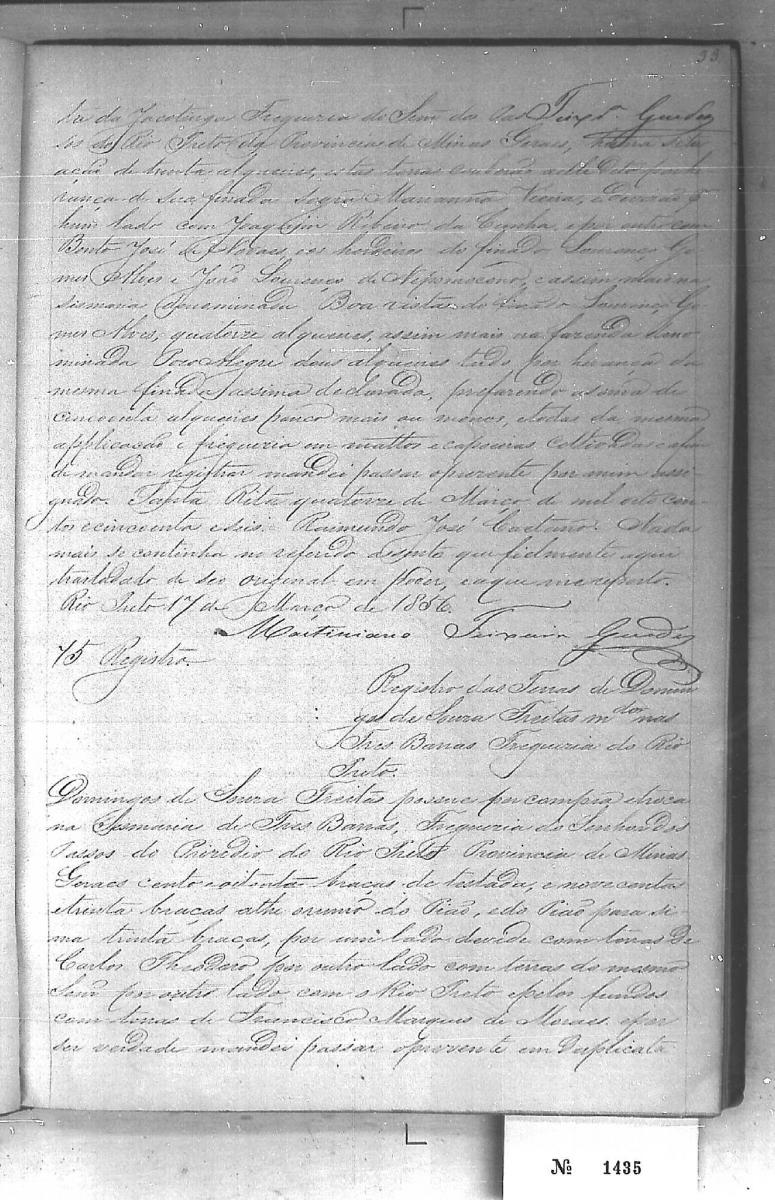 33
ta da Jacotinga Freguezia do Senr. dos Pas Teixr.ª Guedes
sos do Rio Preto da Provincia de Minas Geraes, huma Situ
ação de trinta alqueires, estas terras ouberão delle Dito por he
rança de sua finada sogra Marianna Vieira, e devizão
hum lado com Joaquim Ribeiro da Cunha, e por outro com
Bento José de Novaes, e os herdeiros do finado Lourenço Go
mes Alves e João Lourenço de Neponoceno, e assim mais na
sismaria denominada Boa vista do finado Lourenço Go
mes Alves, quatorze alqueires, assim mais na fazenda deno
minada Poco Alegre dous alqueires tudo por herança da
mesma finada assima declarada, prefazendo a soma de
cincoenta alqueires pouco mais ou menos, e todas da mesma
applicacão e freguezia em mattos e capoeiras Coltivadas e afim
de mandar registrar mandei passar o prezente por mim assi
gnado. Santa Rita quatorze de Março de mil oito cen
tos e cincoenta e seis. Raimundo José Caetano. Nada
mais se continha no referido que fielmente aqui
trasladado de seo original em poder, e a que me reporto.
Rio Preto 17 de Março de 1856.
Martiniano Teixeira Guedes
75 Registro.
Registro das Terras de Domin
gos de Souza Freitas m.dor nas
Tres Barras Freguezia do Rio
Preto.
Domingos de Souza Freitas possue por compra e troca
na Sismaria de Tres Barras, Freguezia do Senhor dos
Passos do Prezidio do Rio Preto Provincia de Minas
Geraes cento e oitenta bracas de testada, e nove centas
e trinta braças athe o rumo do Pião, e do Pião para si
ma trinta bracas, por um lado devide com terras de
Carlos Theodoro, por outro lado com terras do mesmo
Senr. por outro lado com o Rio Preto e pelos fundos
com terras de Francisco Marques de Moraes. e por
ser verdade mandei passar o prezente em Duplicata
Nº 1435